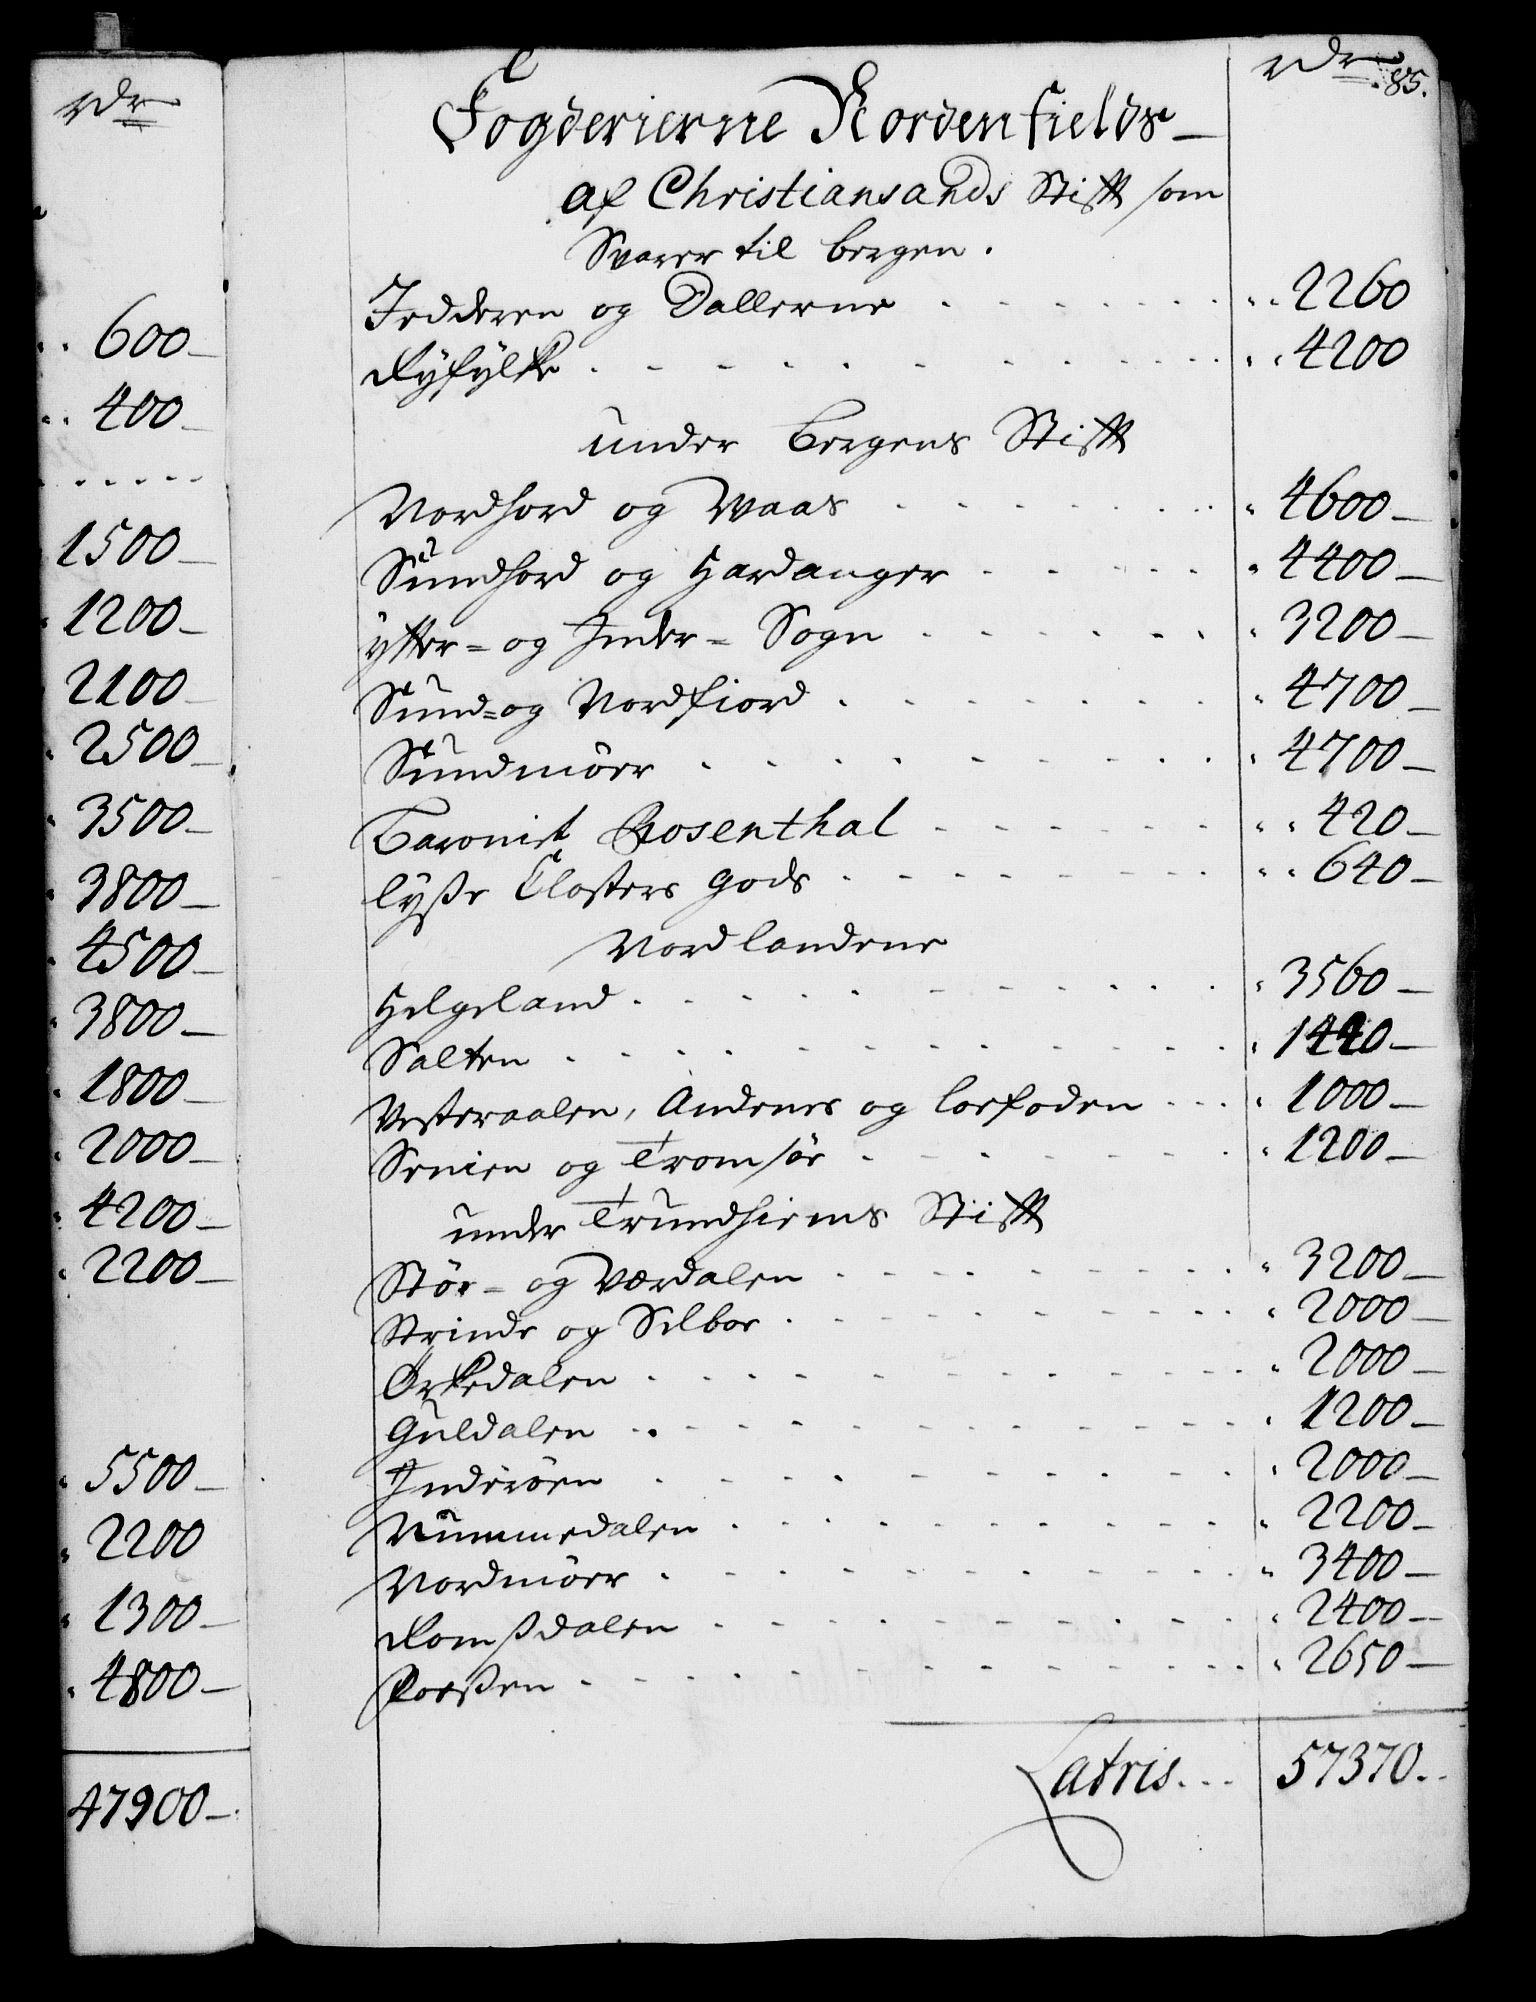 rdr
600
400
1500
1200
2100
2500
3500
3800
4500
3800
1800
2000
4200
2200
5500
2200
1300
4800
47900
rdr 85.
Fogderierne Nordenfields
af Christiansands Stifft som
Svarer til Bergen.
Jedderen og Dallerne 2260
Ryfylke 4200
under Bergens Stifft
Nordhord og Waas 4600
Sundhord og Hardanger 4400
Ytter- og Inder- Sogn 3200
Sund- og Nordfiord 4700
Sundmöer 4700
Baroniet Rosenthal 420
Lyße Closters Gods 640
Nordlandene
Helgeland 3560
Salten 1440
Vesteraalen, Andenes og Loefoden 1000
Senien og Tromsöe 1200
under Trundhiems Stifft
Stör- og Værdalen 3200
Strinde og Selboe 2000
Örkedalen 2000
Guldalen 1200
Inderöen 2000
Nummedalen 2200
Nordmöer 3400
Romßdalen 2400
Foeßen 2650
Latris 57370